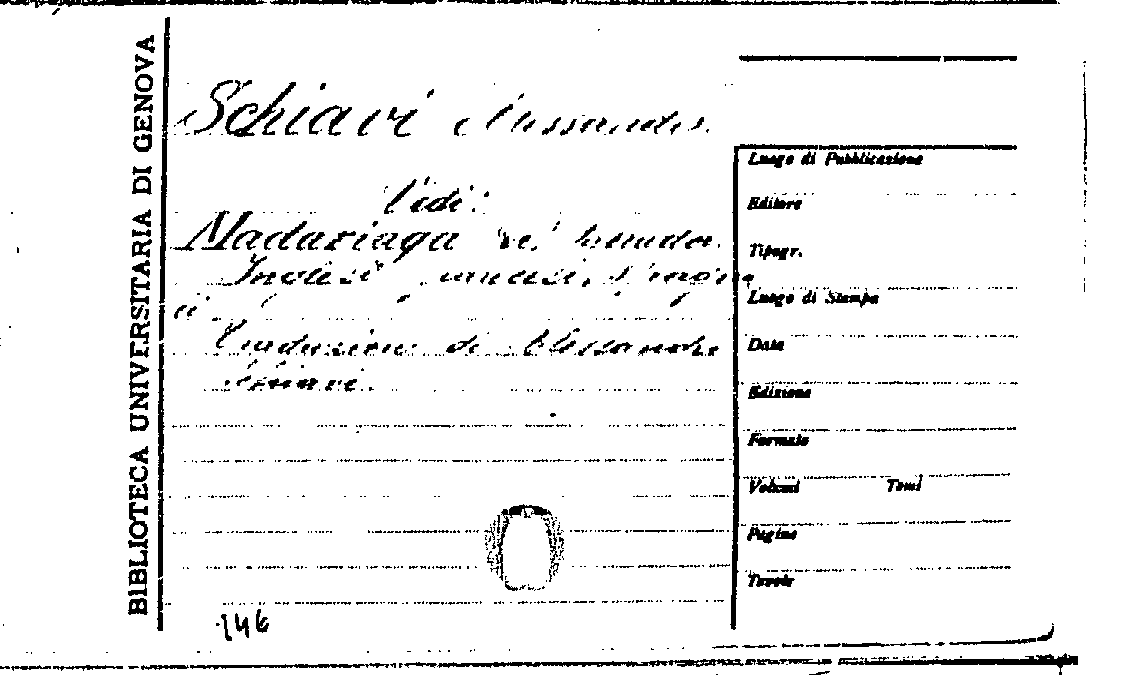 BIBLIOTECA UNIVERSITARIA DI GENOVA
Schiavi Alessandro.
Vedi:
Madariaga
Inglesi, Francesi, Spagno
li
Traduzione di Alessandro
Schiavi.
146
Luogo di Pubblicazione
Editore
Tipogr.
Luogo di Stampa
Data
Edizione
Formato
Volumi Tomi
Pagine
Tavole